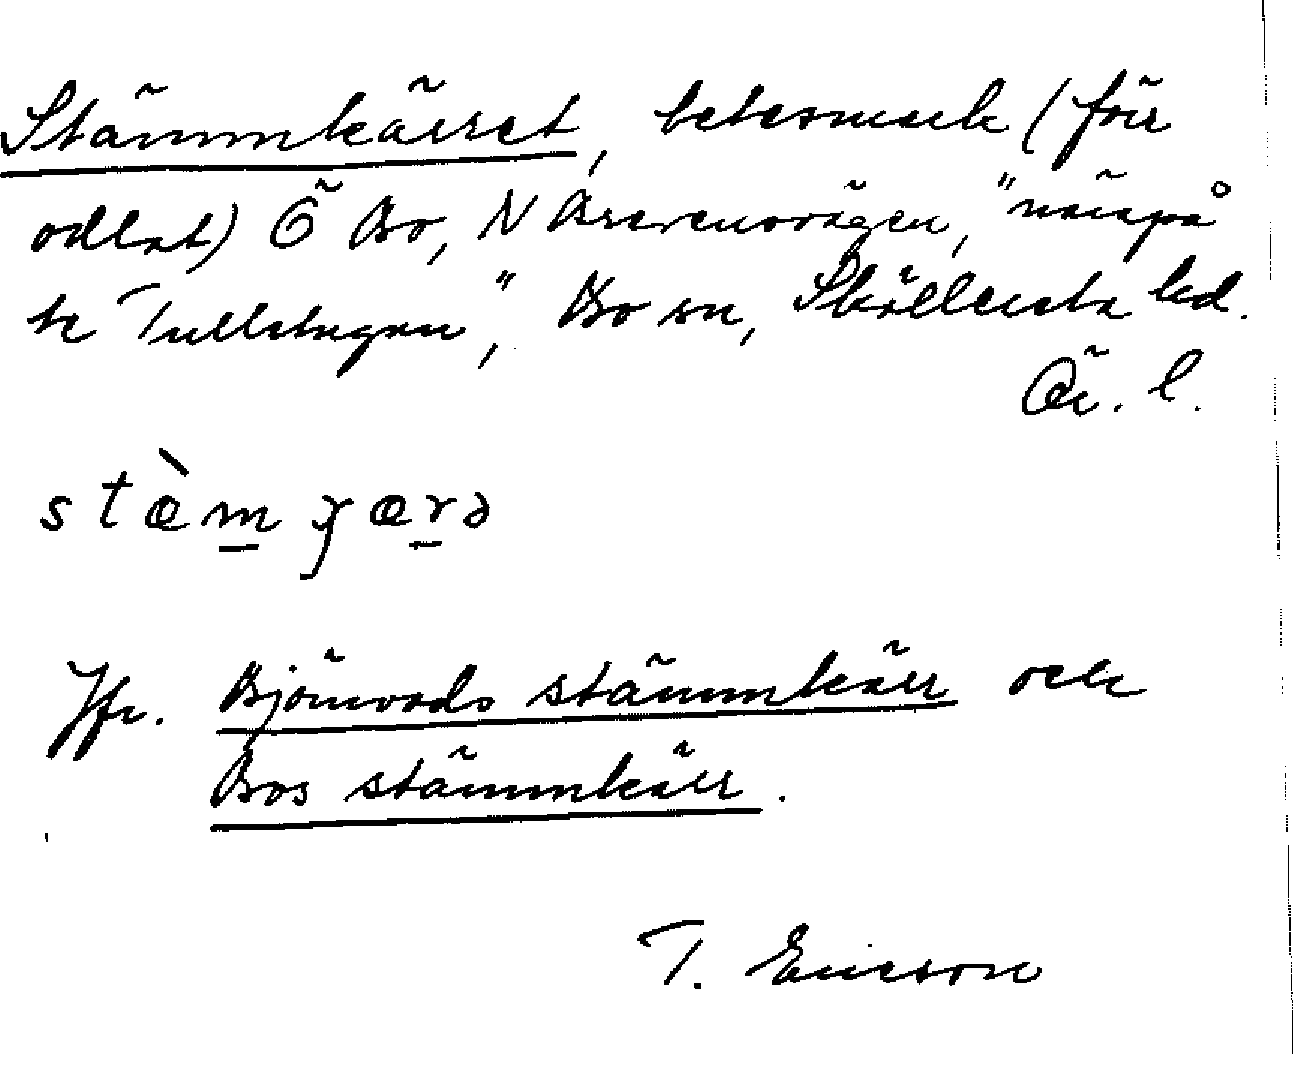 Stämmkärret, betesmark (för
odlat) Ö Bo, N Brevensvägen, "närpå
te Tullstugan", Bo sn, Sköllersta hd.
Ör. l.
stæ̀m̲ ɣær̲ə
Jfr. Björnvads stämmkärr och
Bos stämmkärr.
T. Ericson